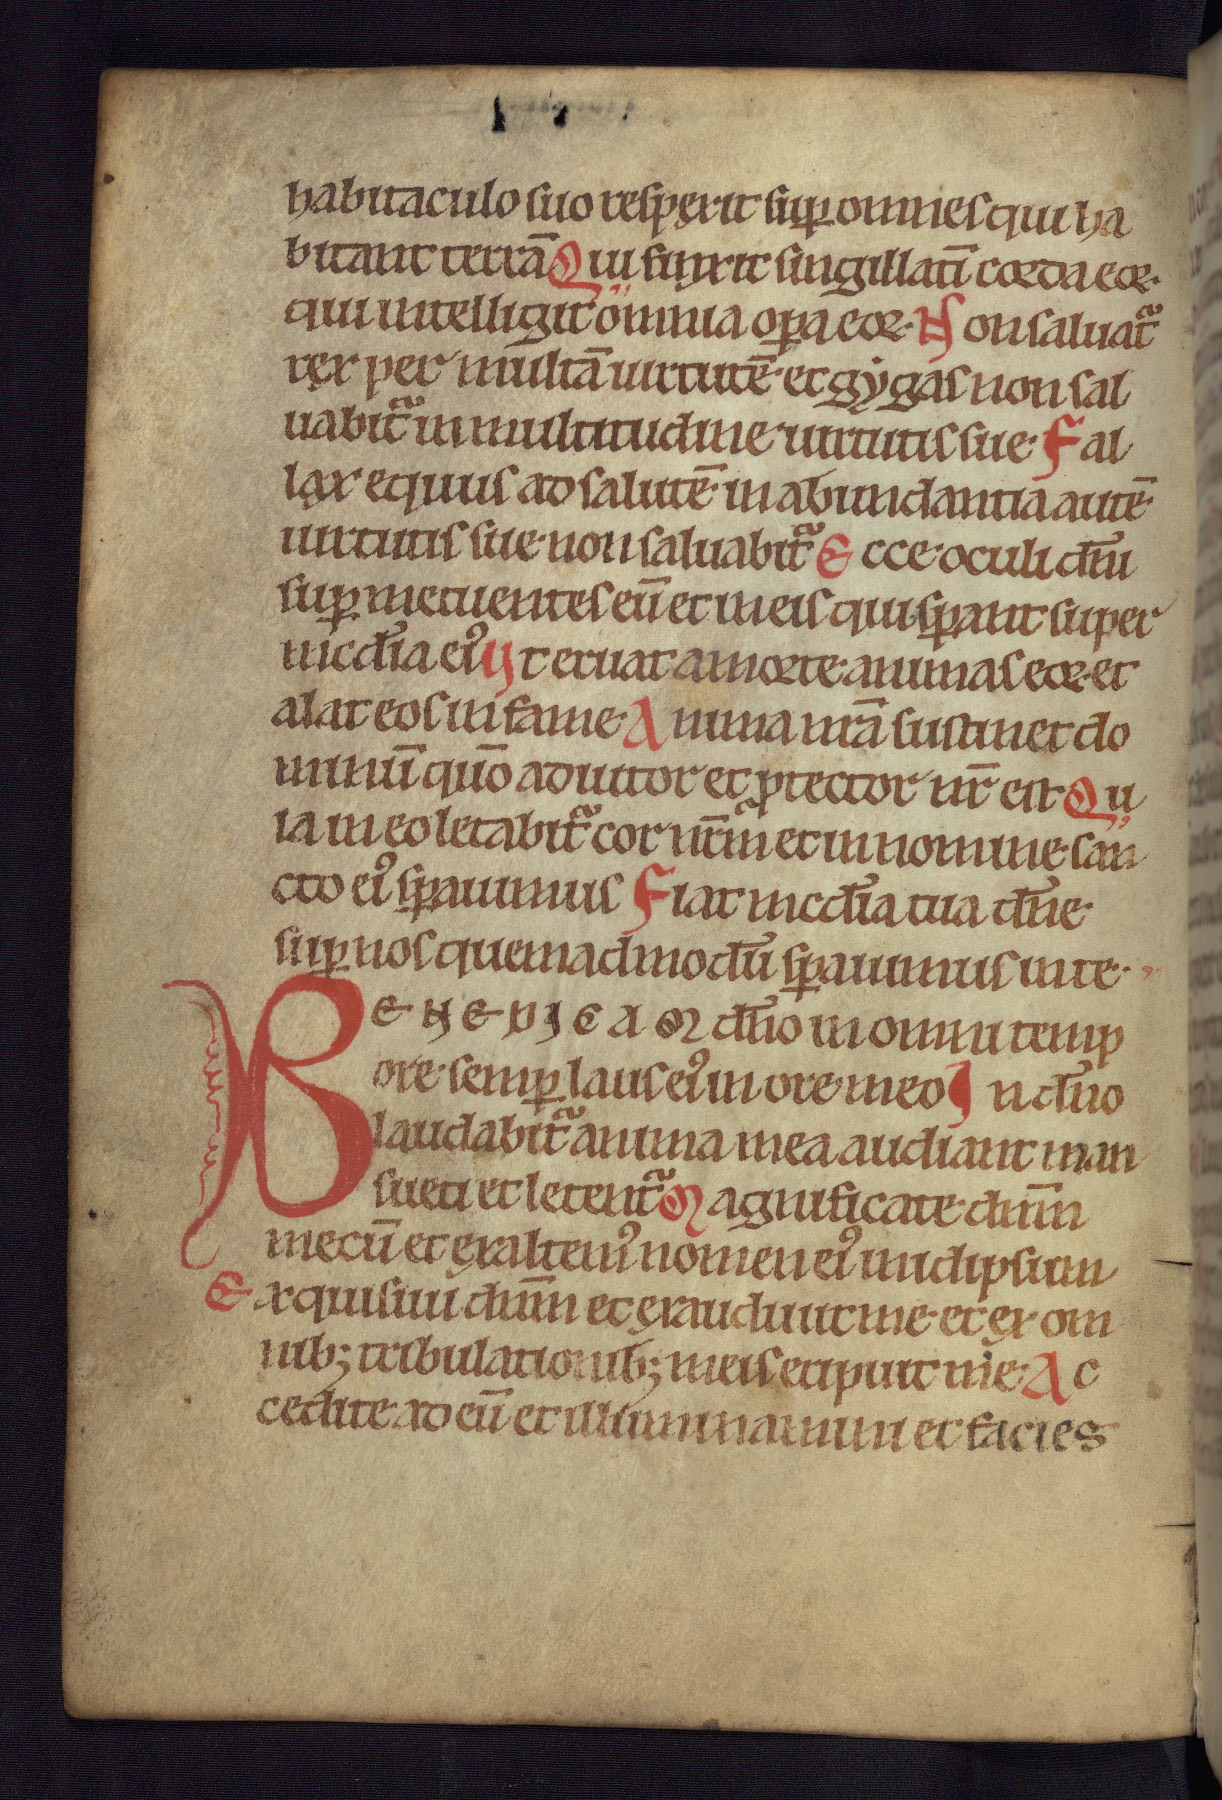 habitaculo suo resperit sup omnes qui ha
bitant terrā Qui finxit singillatī corda eoꝝ·
qui intelligit omnia opa eoꝝ· Non saluat᷑
rex per multā uirtutē· et gẏgas non sal
uabit᷑ in multitudine uirtutis sue· Fal
lax equus ad salutē· in abundantia autē·
uirtutis sue· non saluabit᷑ Ecce· oculi dn̄i
suꝑ metuentes eū et in eis qui sꝑant super
mīcdia eiꝰ Ut eruat a morte· animas eoꝝ· et
alat eos in fame· Anima nr̄a sustinet do
minū qūo adiutor et ꝓtector nr̄ est Qu
ia in eo letabit᷑ cor nr̄m et in nomine· san
cto eiꝰ sꝑauimus Fiat mīcdia tua dn̄e·
suꝑ nos quemadmodū sꝑauimus in te·
BENEDICAM dn̄o in omni temp
ore· semꝑ laus eiꝰ in ore· meo In dn̄o
laudabit᷑ anima mea audiant man
sueti et letent᷑ Magnificate· dn̄m
mecū et exaltemꝰ nomen eiꝰ in idipsum
Exquisiui dn̄m et exaudiuit me· et ex om
nib; tribulationib; meis eripuit me· Ac
cedite· ad eū et illuminamini et facies